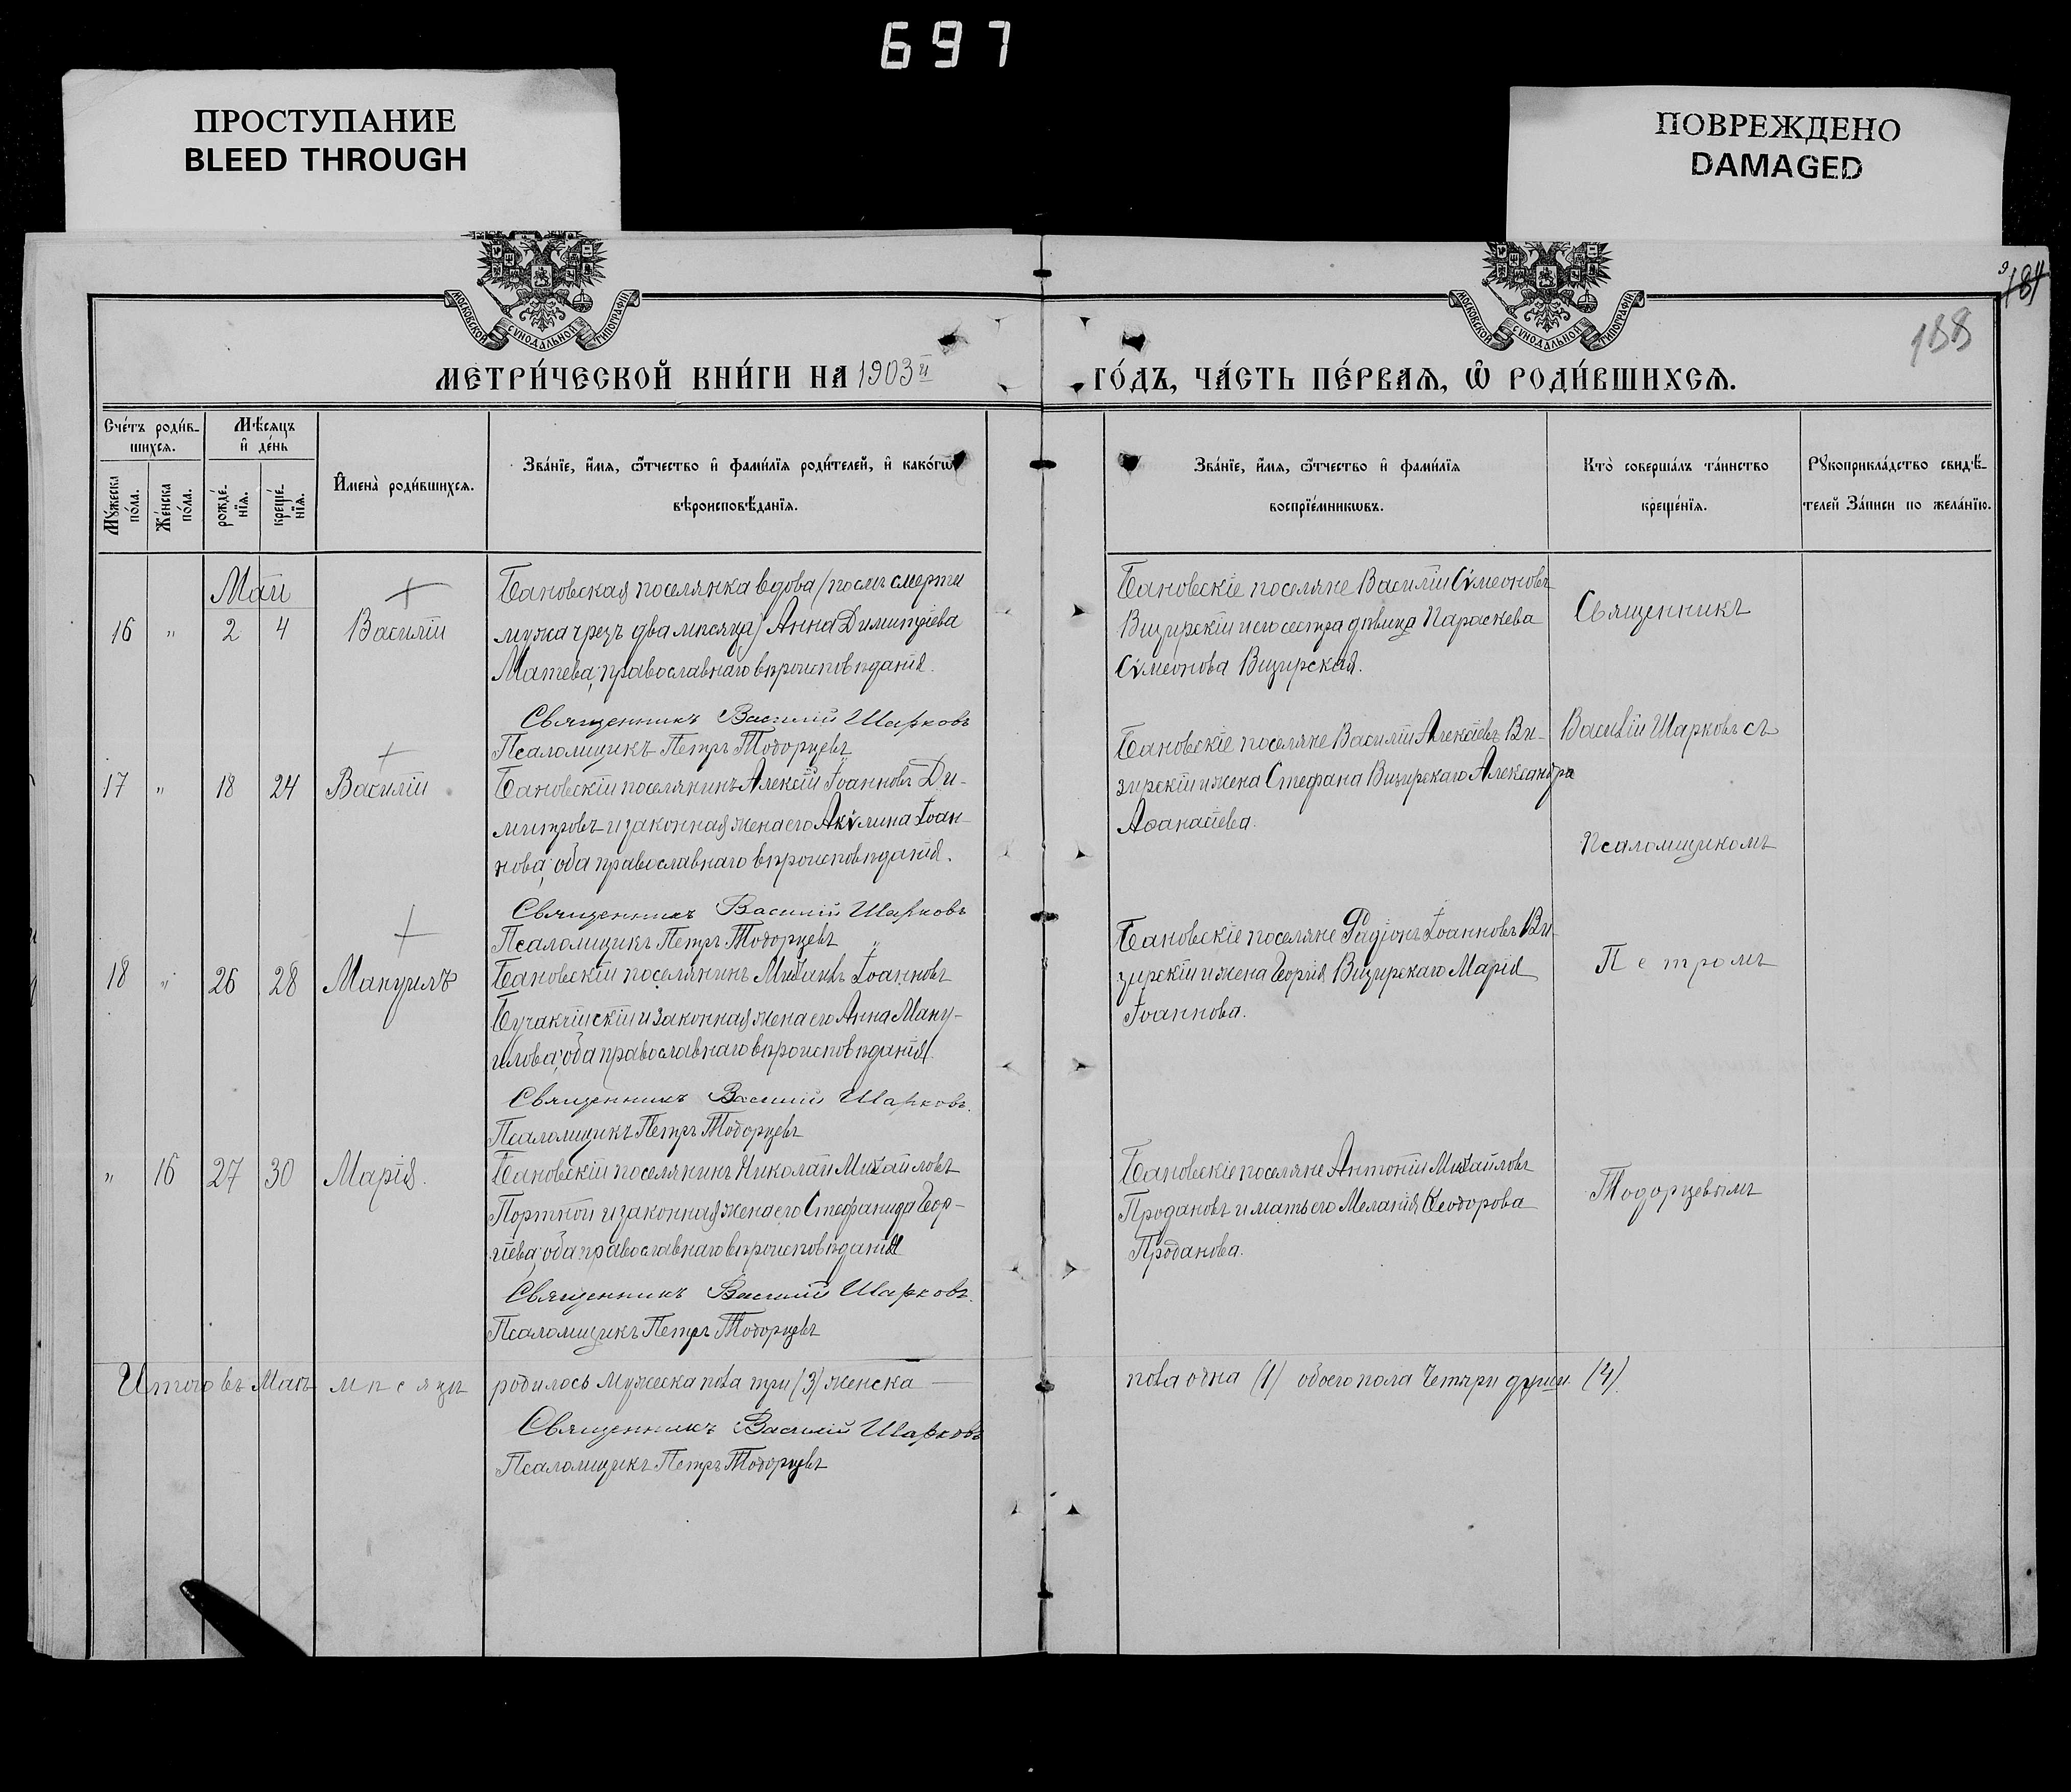 697
ПРОСТУПАНИЕ
BLEED THROUGH
ПОВРЕЖДЕНО
DAMAGED
МОСКОВСКОЙ СѴНОДАЛЬНОЙ ТИПОГРАФІИ
МОСКОВСКОЙ СѴНОДАЛЬНОЙ ТИПОГРАФІИ
188
МЕТРИ́ЧЕСКОЙ КНИ́ГИ НА 1903й ГО́ДЪ, ЧА́СТЬ ПЕ́РВАѦ, Ѡ҆ РОДИ́ВШИХСѦ.
Сче́тъ роди́в-
шихсѧ.
Мꙋжеска по́ла.
Же́нска по́ла.
Мѣ́сѧцъ
и҆ де́нь
рожде́-
нїѧ.
креще́-
нїѧ.
И҆мена̀ роди́вшихсѧ.
Зва́нїе, и҆́мѧ, ѻ҆́тчество и҆ фами́лїѧ роди́телей, и҆ како́гѡ
вѣроисповѣ́данїѧ.
Зва́нїе, и҆́мѧ, ѻ҆́тчество и҆ фами́лїѧ
воспрїе́мникѡвъ.
Кто̀ соверша́лъ та́инство
креще́нїѧ.
Рꙋкоприкла́дство свидѣ́-
телей За́писи по жела́нїю.
Май
16 " 2 4 Василій
Бановская поселянка вдова (послѣ смерти
мужа чрезъ два мѣсяца) Анна Димитріева
Матева; православнаго вѣроисповѣданія.
Священникъ Василій Шарковъ
Псаломщикъ Петръ Тодорцевъ
Бановскіе поселяне Василій Сѵмеоновъ
Визирскій и его сестра дѣвица Параскева
Сѵмеонова Визирская.
17 " 18 24 Василій
Бановскій поселянинъ Алексій Іоанновъ Ди-
митровъ и законная жена его Акѵлина Іоан-
нова; оба православнаго вѣроисповѣданія.
Священникъ Василій Шарковъ
Псаломщикъ Петръ Тодорцевъ
Бановскіе поселяне Василій Алексіевъ Ви-
зирскій и жена Стефана Визирскаго Александра
Аѳанасіева.
18 " 26 28 Мануилъ
Бановскій поселянинъ Михаилъ Іоанновъ
и законная жена его Анна Ману-
илова; оба православнаго вѣроисповѣданія.
Священникъ Василій Шарковъ.
Псаломщикъ Петръ Тодорцевъ
Бановскіе поселяне Радіонъ Іоанновъ Ви-
зирскій и жена Георгія Визирскаго Марія
Іоаннова.
" 16 27 30 Марія.
Бановскій поселянинъ Николай Михайловъ
Портной и законная жена его Стефанида Геор-
гіева; оба православнаго вѣроисповѣданія
Священникъ Василій Шарковъ.
Псаломщикъ Петръ Тодорцевъ
Бановскіе поселяне Антоній Михайловъ
Продановъ и мать его Меланія Ѳеодорова
Проданова.
Священникъ
Василій Шарковъ съ
Псаломщикомъ
Петромъ
Тодорцевымъ
Итого въ Маѣ мѣсяцѣ родилось мужеска пола три (3) женска
пола одна (1) обоего пола четыри души (4).
Священникъ Василій Шарковъ
Псаломщикъ Петръ Тодорцевъ